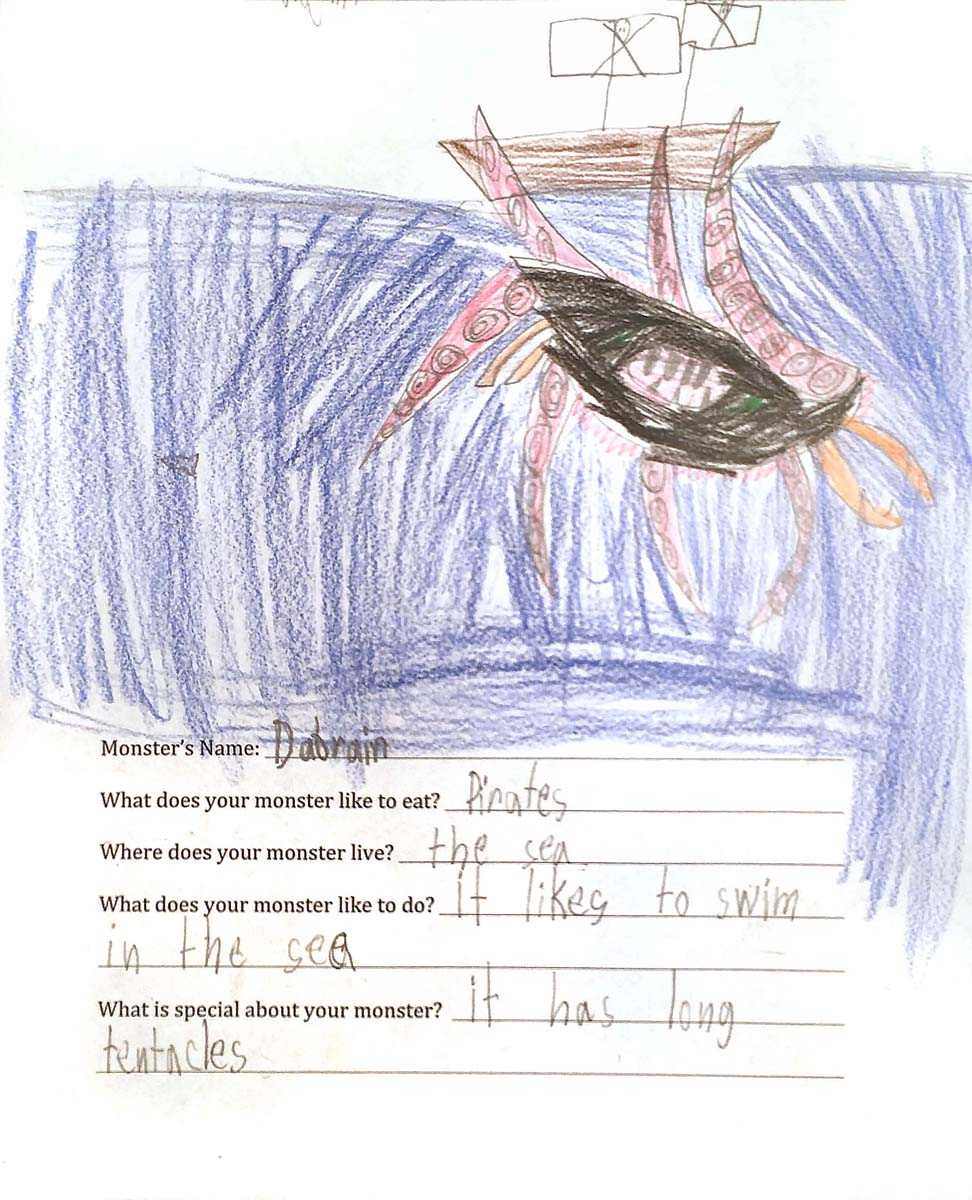 Monster's Name: Dabrain
What does your monster like to eat? Pirates
Where does your monster live? the sea
What does your monster like to do? it likes to swim
in the sea
What is special about your monster? it has long
tentacles